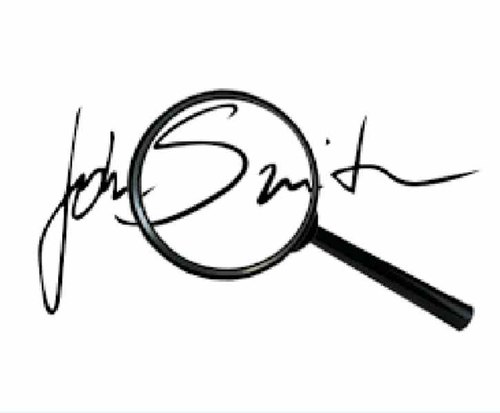 John Smith